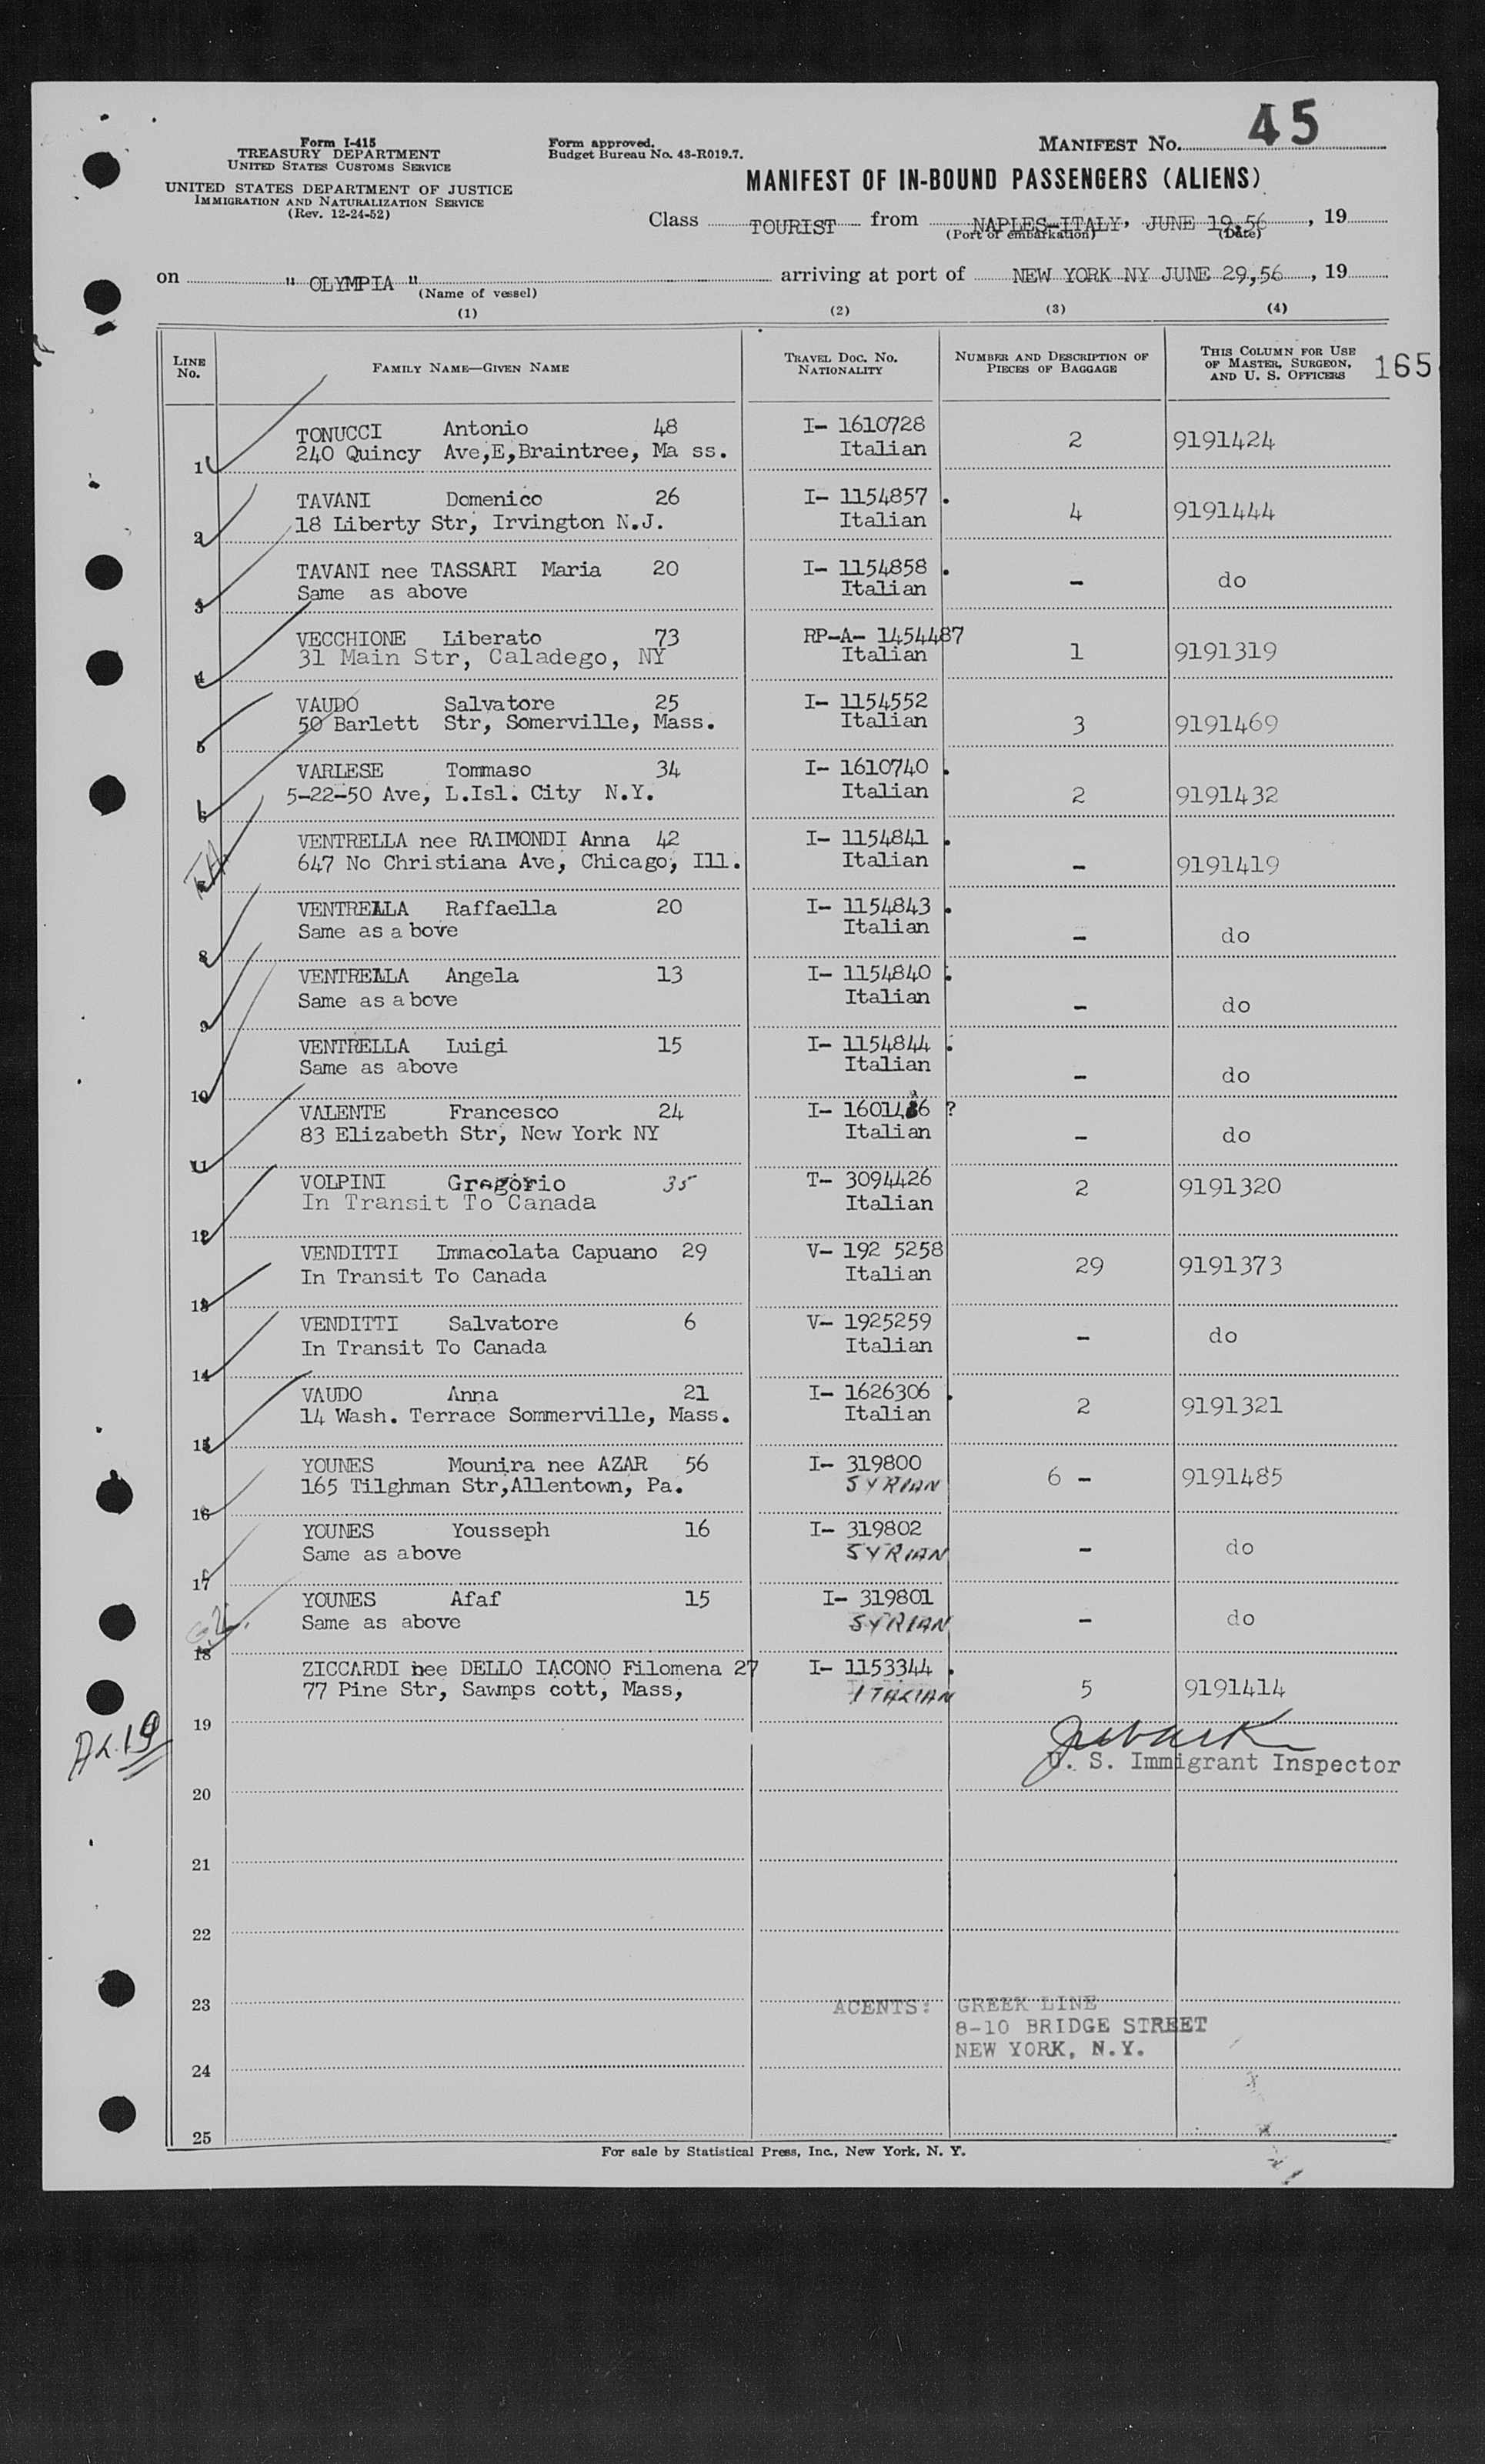 Form I-415
TREASURY DEPARTMENT
UNITED STATES CUSTOMS SERVICE
UNITED STATES DEPARTMENT OF JUSTICE
IMMIGRATION AND NATURALIZATION SERVICE
(Rev. 12-24-52)
Form approved.
Budget Bureau No. 43-R019.7.
MANIFEST No. 45
MANIFEST OF IN-BOUND PASSENGERS (ALIENS)
Class TOURIST from NAPLES-ITALY, JUNE 19,56, 19
(Port of embarkation) (Date)
on " OLYMPIA " arriving at port of NEW YORK NY JUNE 29,56, 19
(Name of vessel)
(1) (2) (3) (4)
LINE No. FAMILY NAME—GIVEN NAME TRAVEL DOC. No. NATIONALITY NUMBER AND DESCRIPTION OF PIECES OF BAGGAGE THIS COLUMN FOR USE OF MASTER, SURGEON, AND U. S. OFFICERS 165
TONUCCI Antonio 48 I- 1610728
1 240 Quincy Ave,E,Braintree, Ma ss. Italian 2 9191424
TAVANI Domenico 26 I- 1154857 .
2 18 Liberty Str, Irvington N.J. Italian 4 9191444
TAVANI nee TASSARI Maria 20 I- 1154858 .
3 Same as above Italian - do
VECCHIONE Liberato 73 RP-A- 1454487
4 31 Main Str, Caladego, NY Italian 1 9191319
VAUDO Salvatore 25 I- 1154552
5 50 Barlett Str, Somerville, Mass. Italian 3 9191469
VARLESE Tommaso 34 I- 1610740 .
6 5-22-50 Ave, L.Isl. City N.Y. Italian 2 9191432
VENTRELLA nee RAIMONDI Anna 42 I- 1154841 .
647 No Christiana Ave, Chicago, Ill. Italian - 9191419
VENTRELLA Raffaella 20 I- 1154843 .
8 Same as a bove Italian - do
VENTRELLA Angela 13 I- 1154840 .
9 Same as a bove Italian - do
VENTRELLA Luigi 15 I- 1154844 .
10 Same as above Italian - do
VALENTE Francesco 24 I- ?
11 83 Elizabeth Str, New York NY Italian - do
VOLPINI Gregorio 35 T- 3094426
12 In Transit To Canada Italian 2 9191320
VENDITTI Immacolata Capuano 29 V- 192 5258
13 In Transit To Canada Italian 29 9191373
VENDITTI Salvatore 6 V- 1925259
14 In Transit To Canada Italian - do
VAUDO Anna 21 I- 1626306 .
15 14 Wash. Terrace Sommerville, Mass. Italian 2 9191321
YOUNES Mounira nee AZAR 56 I- 319800
16 165 Tilghman Str,Allentown, Pa. SYRIAN 6 - 9191485
YOUNES Yousseph 16 I- 319802
17 Same as above SYRIAN - do
YOUNES Afaf 15 I- 319801
18 Same as above SYRIAN - do
ZICCARDI nee DELLO IACONO Filomena 27 I- 1153344 .
19 77 Pine Str, Sawmps cott, Mass, ITALIAN 5 9191414
U. S. Immigrant Inspector
20
21
22
23 ACENTS: GREEK LINE
8-10 BRIDGE STREET
NEW YORK, N.Y.
24
25
For sale by Statistical Press, Inc., New York, N. Y.